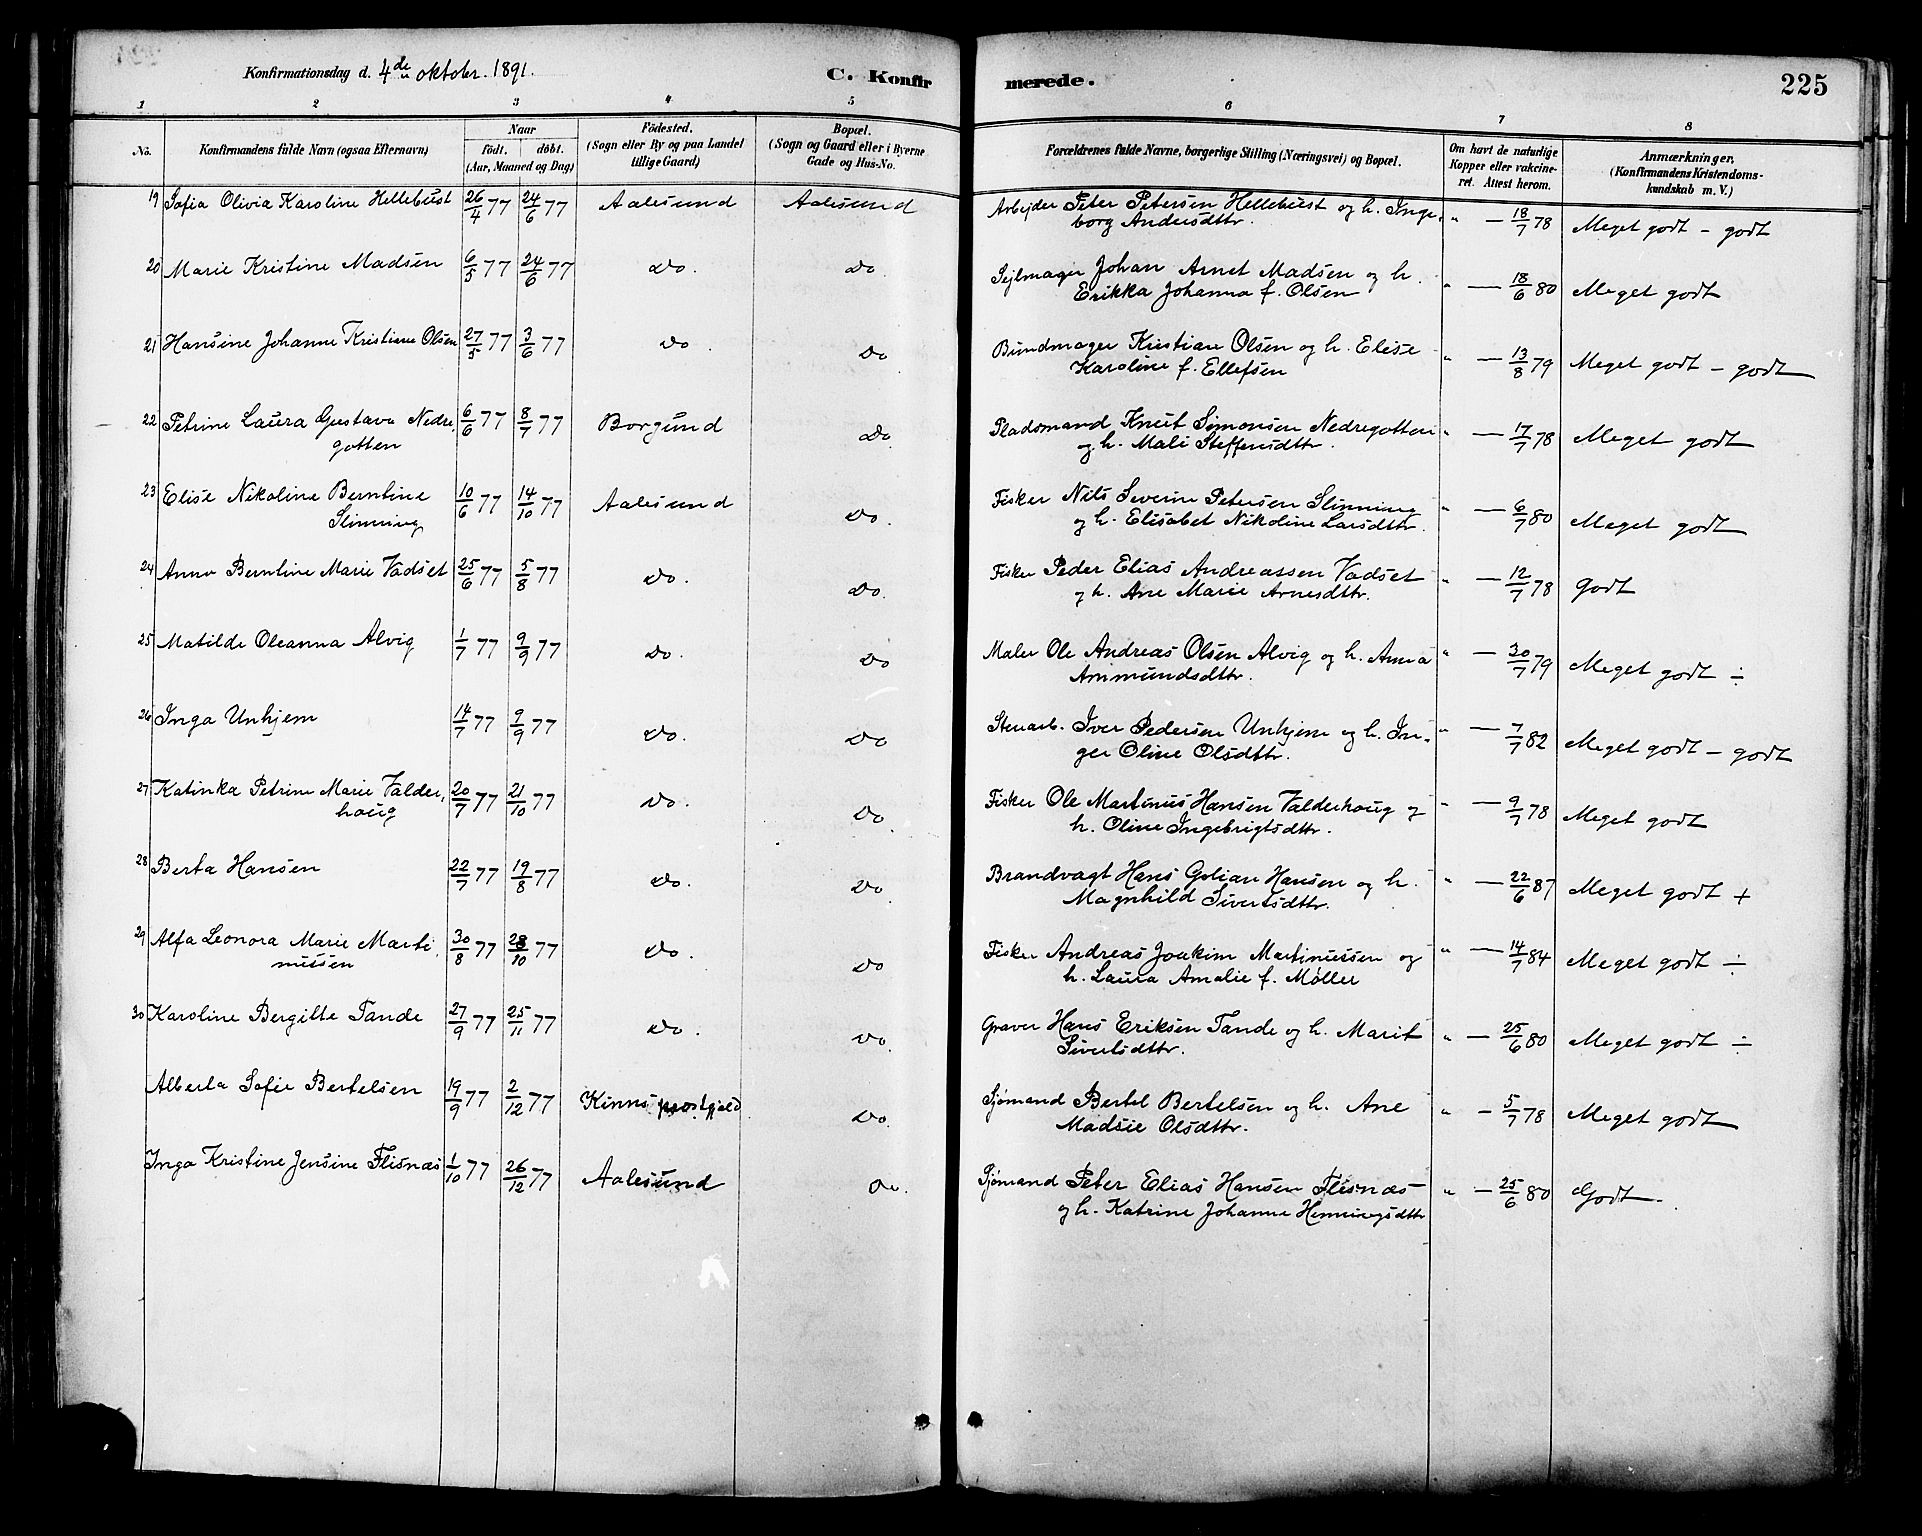 Konfirmationsdag d. 4de oktober. 1891.
C. Konfirmerede.
225
1 2 3 4 5 6 7 8
No.
Konfirmandens fulde Navn (ogsaa Efternavn)
Naar
Födt. döbt.
(Aar, Maaned og Dag)
Födested.
(Sogn eller By og paa Landet
tillige Gaard)
Bopæl.
(Sogn og Gaard eller i Byerne
Gade og Hus-No.
Forældrenes fulde Navne, borgerlige Stilling (Næringsvei) og Bopæl.
Om havt de naturlige
Kopper eller vakcine-
ret. Attest herom.
Anmærkninger,
(Konfirmandens Kristendoms-
kundskab m. V.)
19 Sofia Olivia Karoline Hellebust 26/4 77 24/6 77 Aalesund Aalesund Arbejder Peter Petersen Hellebust og h. Inge-
borg Andersdttr. " — 18/7 78 Meget godt - godt
20 Marie Kristine Madsen 6/5 77 24/6 77 do. do. Sejlmager Johan Arnet Madsen og h.
Erikka Johanna f. Olsen " — 18/6 80 Meget godt
21 Hansine Johanne Kristiane Olsen 27/5 77 3/6 77 do. do Bundmager Kristian Olsen og h. Elise
Karoline f. Ellefsen " — 13/8 79 Meget godt - godt
22 Petrine Laura Gustava Nedre-
gotten 6/6 77 8/7 77 Borgund do Pladsmand Knut Simonsen Nedregotten
og h. Mali Steffensdttr. " — 17/7 78 Meget godt
23 Elise Nikoline Berntine
Slinning 10/6 77 14/10 77 Aalesund do. Fisker Nils Severin Petersen Slinning
og h. Elisabet Nikoline Larsdttr. " — 6/7 80 Meget godt
24 Anna Berntine Marie Vadset 25/6 77 5/8 77 do. do. Fisker Peder Elias Andreassen Vadset
og h. Ane Marie Arnesdttr. " — 12/7 78 Godt
25 Matilde Oleanna Alvig 1/7 77 9/9 77 do. do Maler Ole Andreas Olsen Alvig og h. Anna
Ammundsdttr. " — 30/7 79 Meget godt ÷
26 Inga Unhjem 14/7 77 9/9 77 do. do Stenarb. Iver Pedersen Unhjem og h. In-
ger Oline Olsdttr. " — 7/7 82 Meget godt - godt
27 Katinka Petrine Marie Valder-
houg 20/7 77 21/10 77 do. do. Fisker Ole Martinus Hansen Valderhoug og
h. Oline Ingebrigtsdttr. " — 9/7 78 Meget godt
28 Berta Hansen 22/7 77 19/8 77 do. do Brandvagt Hans Golian Hansen og h.
Magnhild Sivertsdttr. " — 22/6 87 Meget godt +
29 Alfa Leonora Marie Marti-
nussen 30/8 77 28/10 77 do. do Fisker Andreas Joakim Martinussen og
h. Laura Amalie f. Møller " — 14/7 84 Meget godt ÷
30 Karoline Bergitte Tande 27/9 77 25/11 77 do. do. Graver Hans Eriksen Tande og h. Marit
Sivertsdttr. " — 25/6 80 Meget godt ÷
Alberta Sofie Bertelsen 19/9 77 2/12 77 Kinns prestgjeld do. Sjømand Bertel Bertelsen og h. Ane
Madsie Olsdttr. " — 5/7 78 Meget godt
Inga Kristine Jensine Flisnæs 1/10 77 26/12 77 Aalesund do. Sjømand Peter Elias Hansen Flisnæs
og h. Katrine Johanne Henningsdttr " — 25/6 80 Godt.